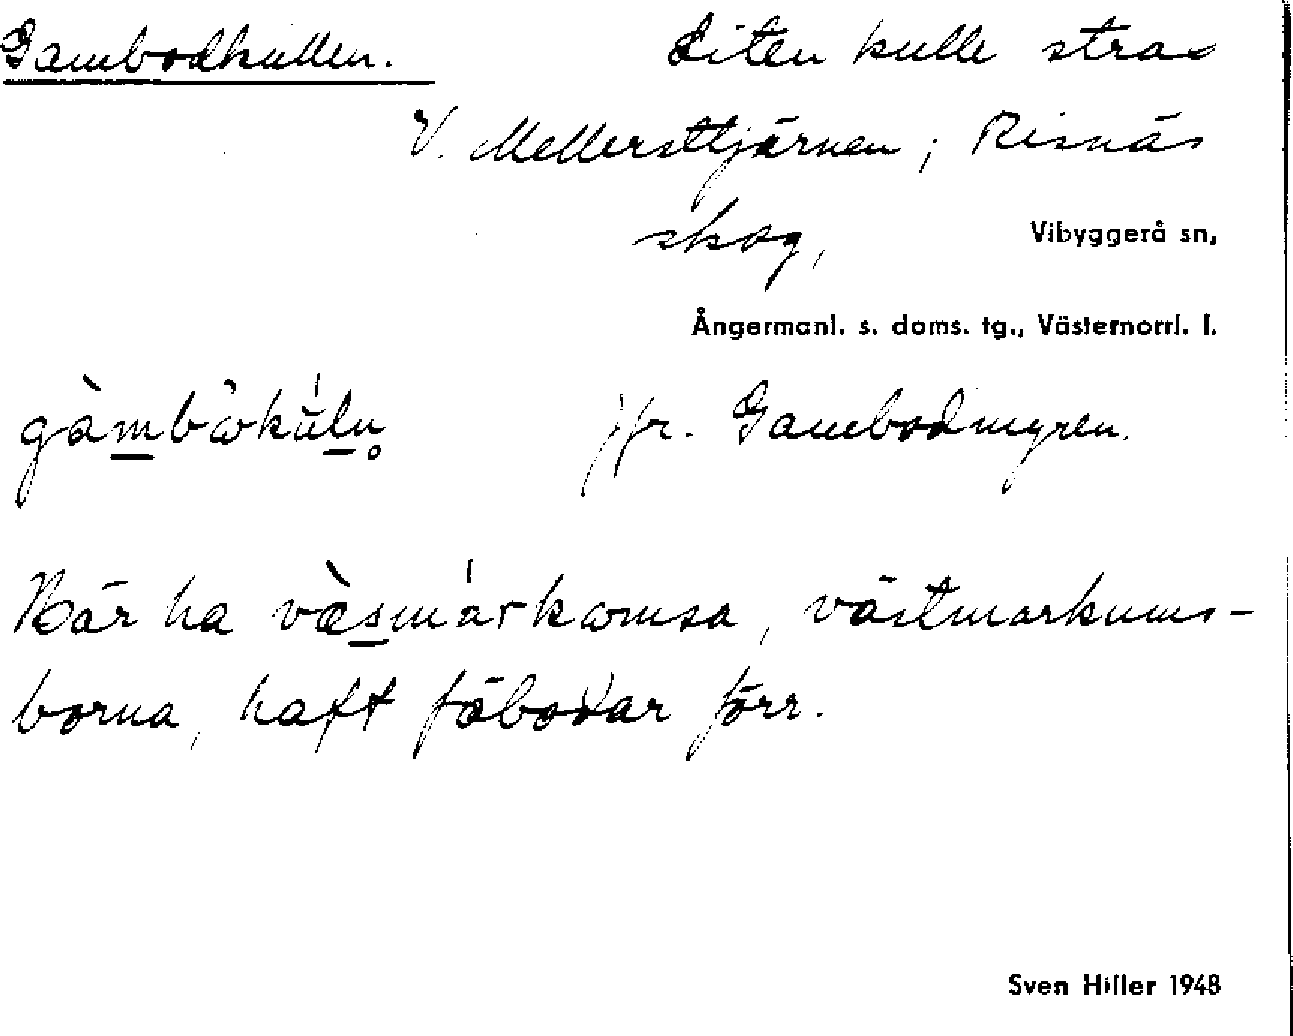 Gambodkullen. Liten kulle strax
V. Mellersttjärnen; Risnäs
skog, Vibyggerå sn,
Ångermanl. s. doms. tg., Västernorrl. l.
jfr. Gambodmyren.
Här ha västmarkums-
borna, haft fäbodar förr.
Sven Hiller 1948